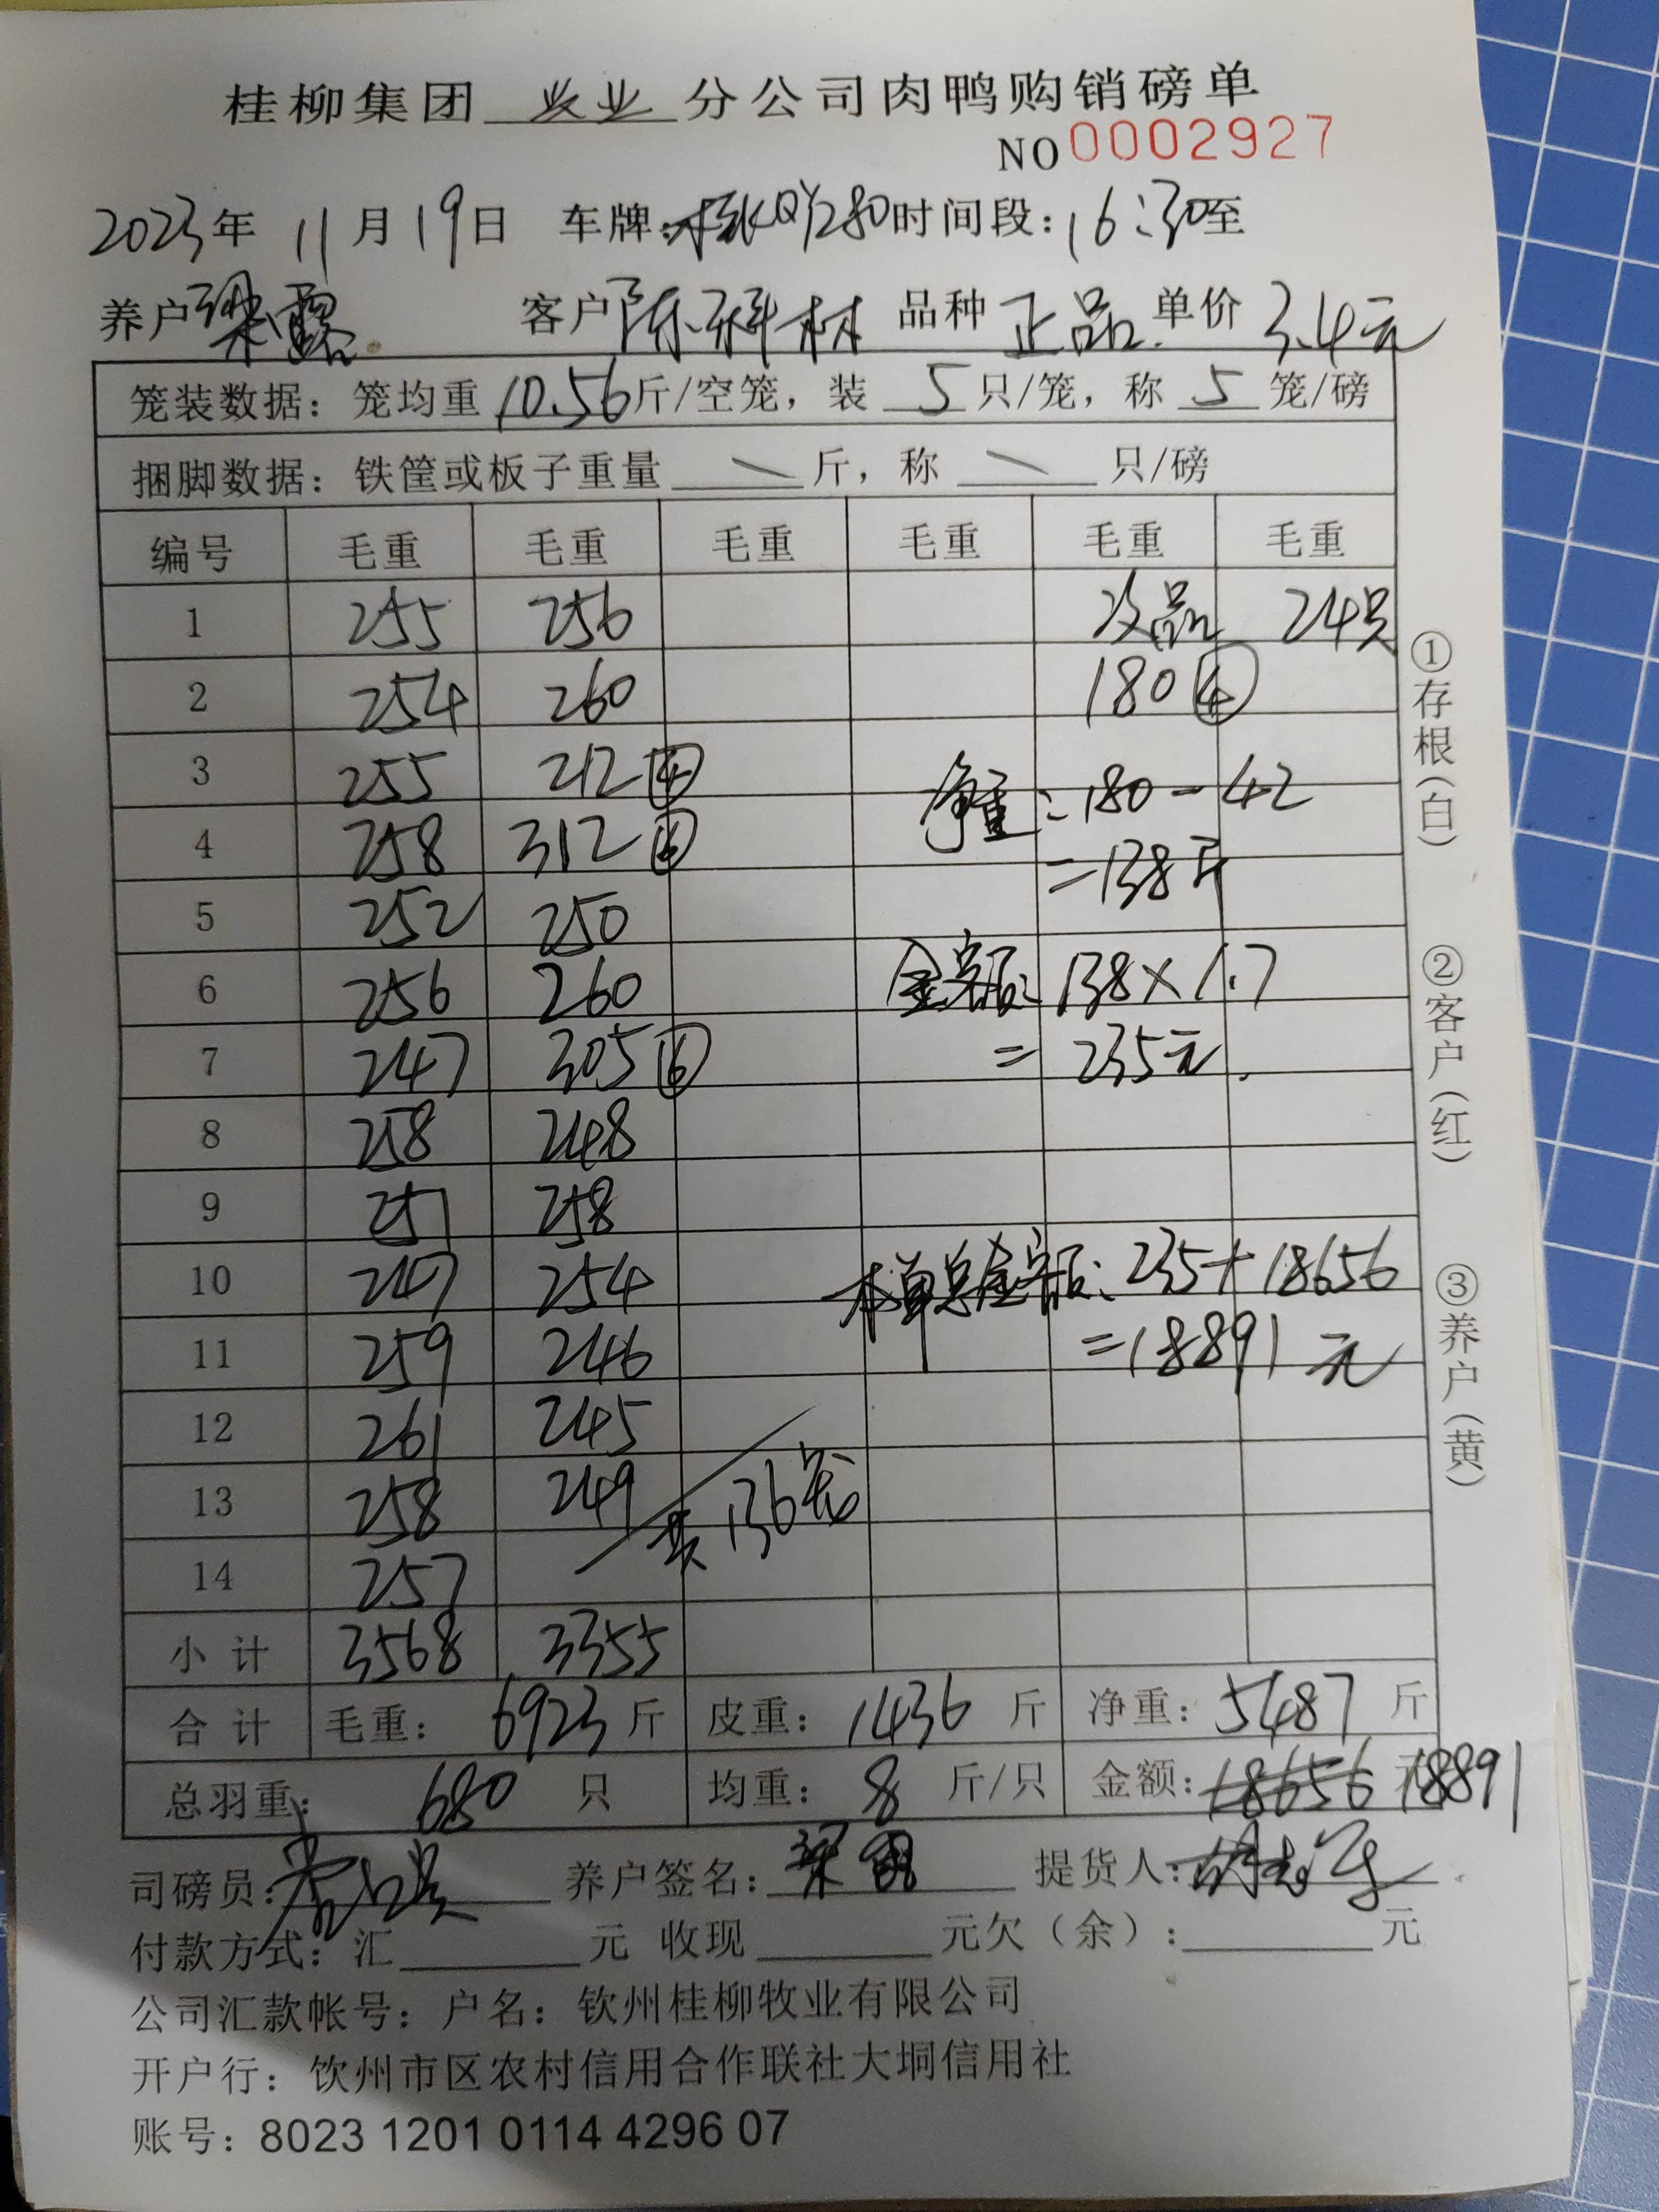 桂柳集团 牧业 分公司肉鸭购销磅单
NO 0002927
2023年 11月19日 车牌: 时间段: 16:30至
养户 梁露 客户 陈科材 品种 正品. 单价 3.4元
笼装数据: 笼均重 10.56斤/空笼, 装 5 只/笼, 称 5 笼/磅
捆脚数据: 铁筐或板子重量 \ 斤, 称 \ 只/磅
编号 毛重 毛重 毛重 毛重 毛重 毛重
1 255 256 次品 24只
2 254 260 180 ④
3 255 212 ④ 净重: 180-42
4 258 312 ⑥ =138斤
5 252 250
6 256 260 金额: 138×1.7
7 247 305 ⑥ = 235元.
8 258 248
9 251 258
10 247 254 本单总金额: 235+18656
11 259 246 =18891元
12 261 245
13 258 249 共136笼
14 257
小计 3568 3355
合计 毛重: 6923 斤 皮重: 1436 斤 净重: 5487 斤
总羽重: 680 只 均重: 8 斤/只 金额: 18656 元 18891
司磅员: 养户签名: 梁 提货人:
付款方式: 汇 元 收现 元欠(余): 元
公司汇款帐号: 户名: 钦州桂柳牧业有限公司
开户行: 钦州市区农村信用合作联社大垌信用社
账号: 8023 1201 0114 4296 07
①存根(白)
②客户(红)
③养户(黄)